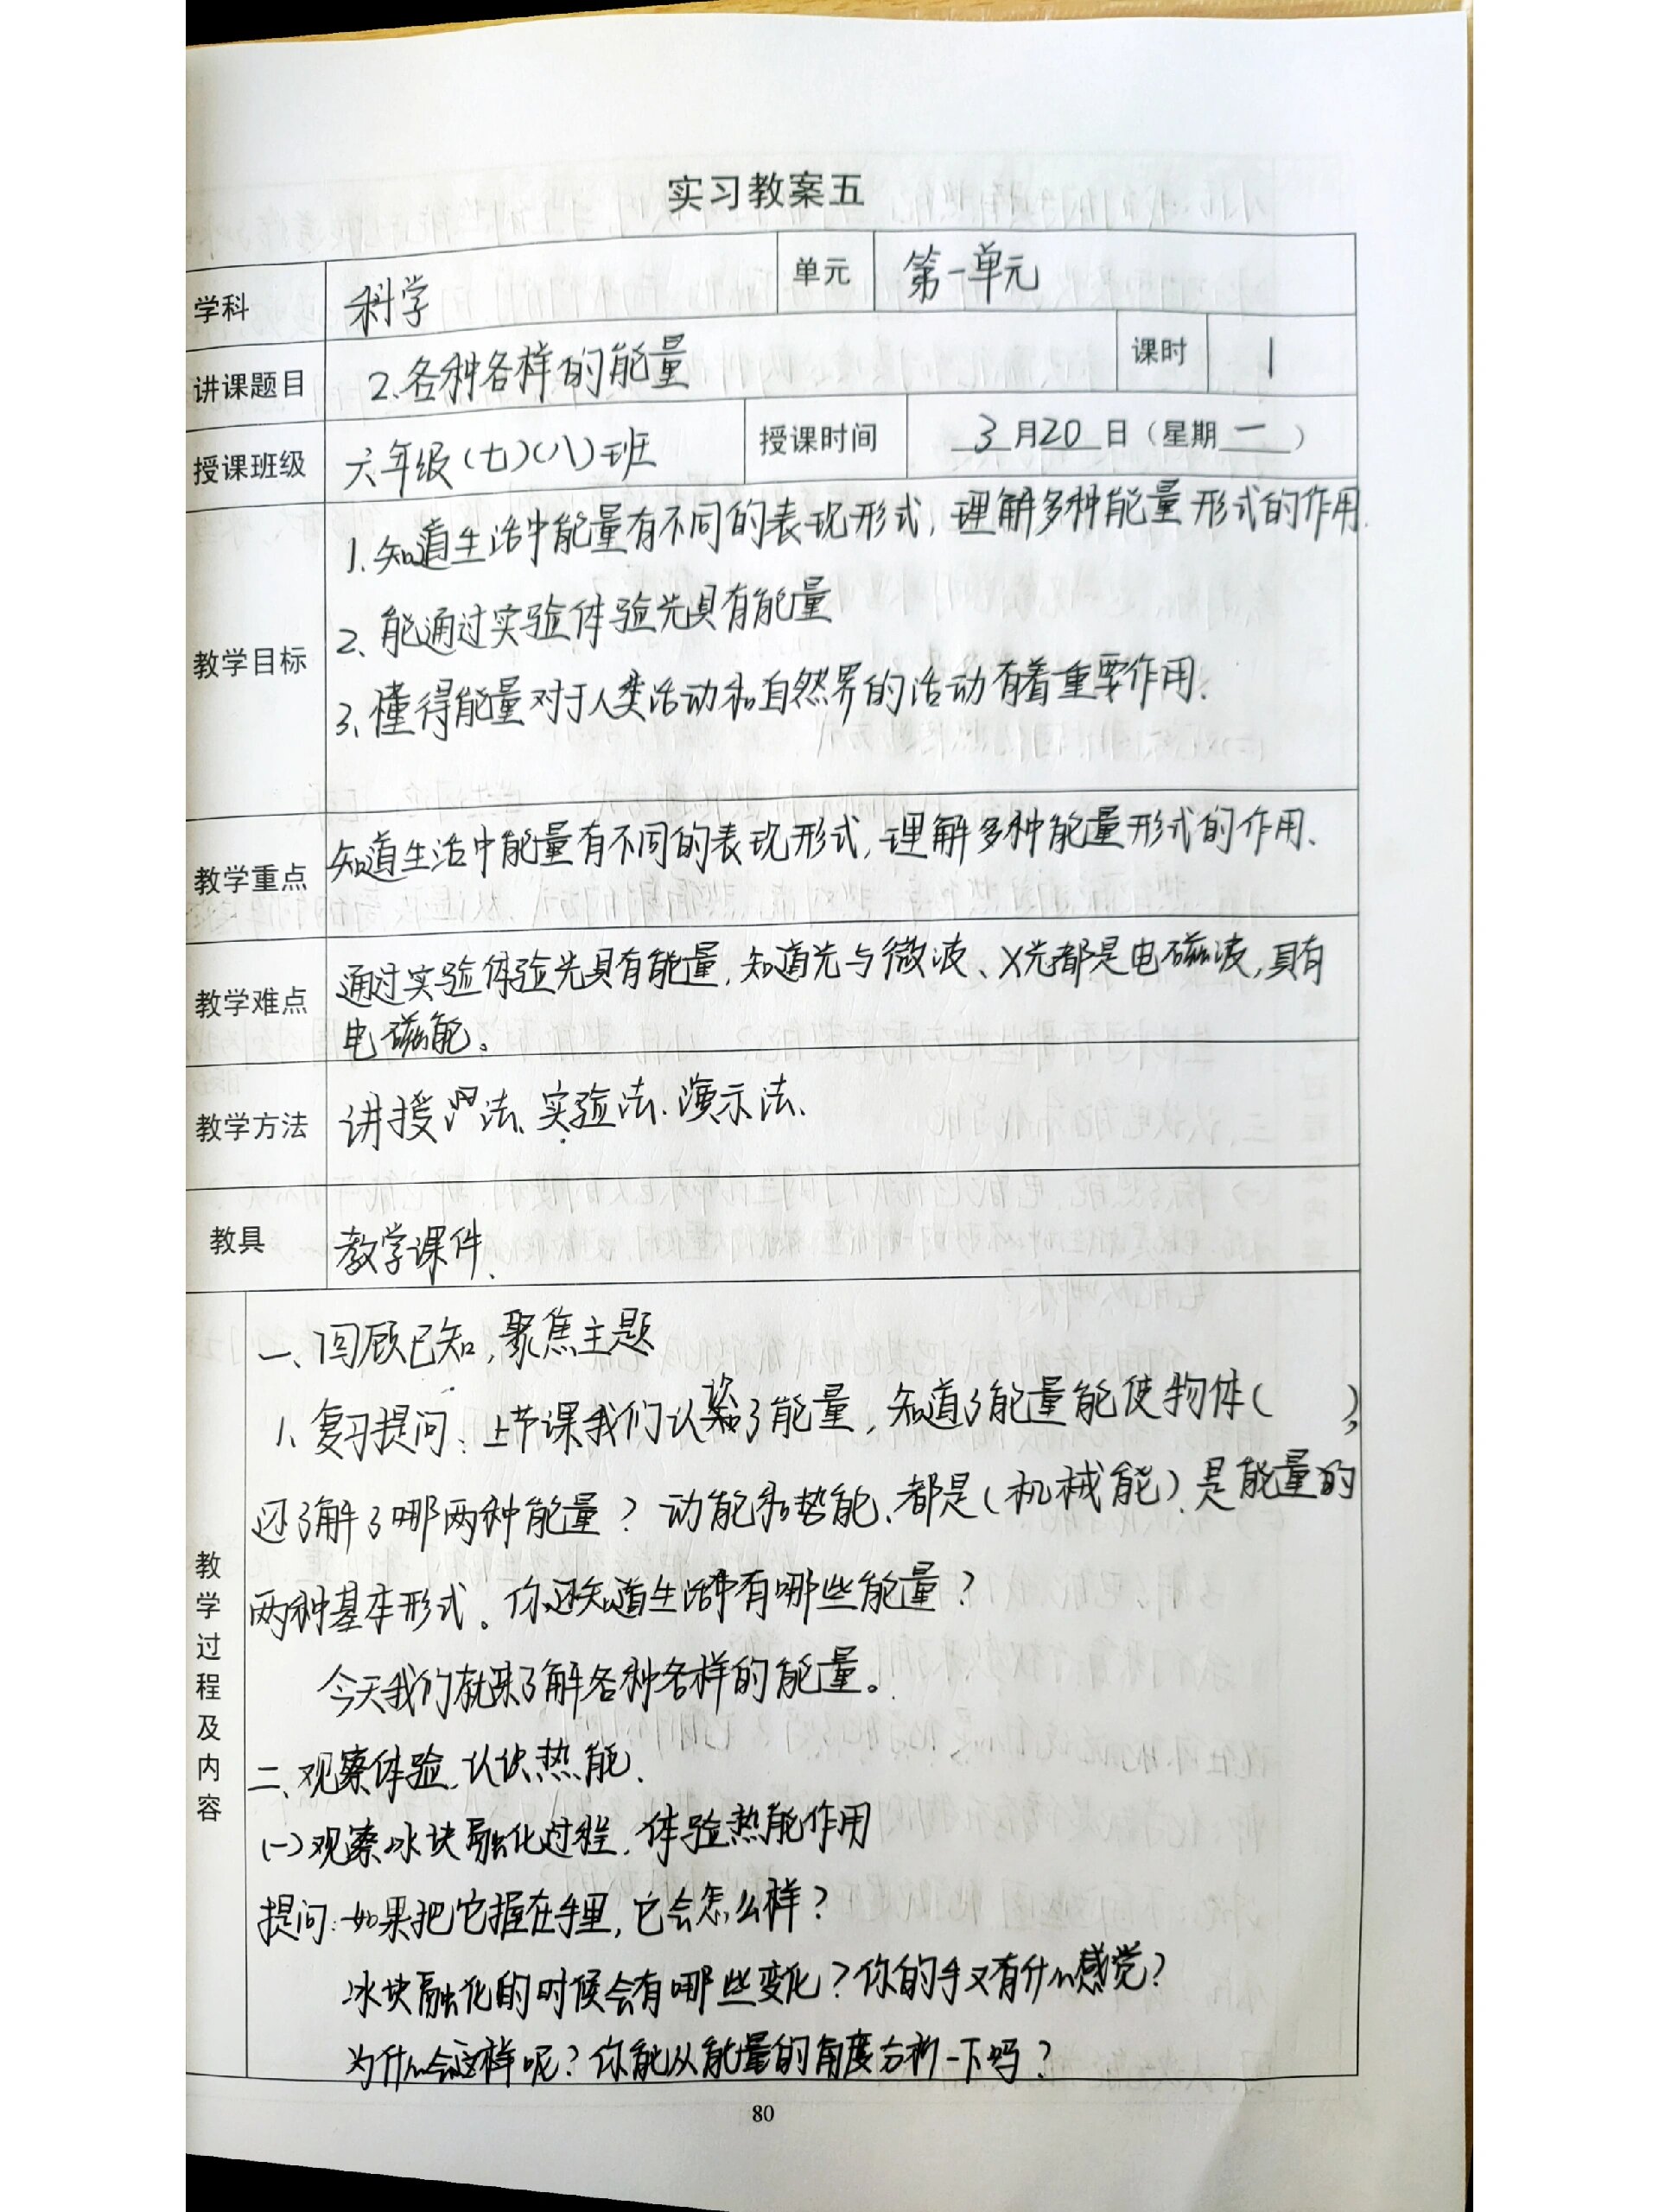 实习教案五
学科 科学 单元 第一单元
讲课题目 2.各种各样的能量 课时 1
授课班级 六年级(七)(八)班 授课时间 3月20日(星期一)
教学目标
1.知道生活中能量有不同的表现形式,理解多种能量形式的作用.
2、能通过实验体验光具有能量
3、懂得能量对于人类活动和自然界的活动有着重要作用.
教学重点 知道生活中能量有不同的表现形式,理解多种能量形式的作用、
教学难点 通过实验体验光具有能量,知道光与微波、X光都是电磁波,具有
电磁能。
教学方法 讲授法、实验法、演示法、
教具 教学课件、
教学过程及内容
一、回顾已知,聚焦主题
1、复习提问:上节课我们认识了能量,知道了能量能使物体( ),
还了解了哪两种能量?动能和势能、都是(机械能)、是能量的
两种基本形式。你还知道生活中有哪些能量?
今天我们就来了解各种各样的能量。
二、观察体验、认识热能、
(一)观察冰块融化过程,体验热能作用
提问:如果把它握在手里,它会怎么样?
冰块融化的时候会有哪些变化?你的手又有什么感觉?
为什么会这样呢?你能从能量的角度分析一下吗?
80